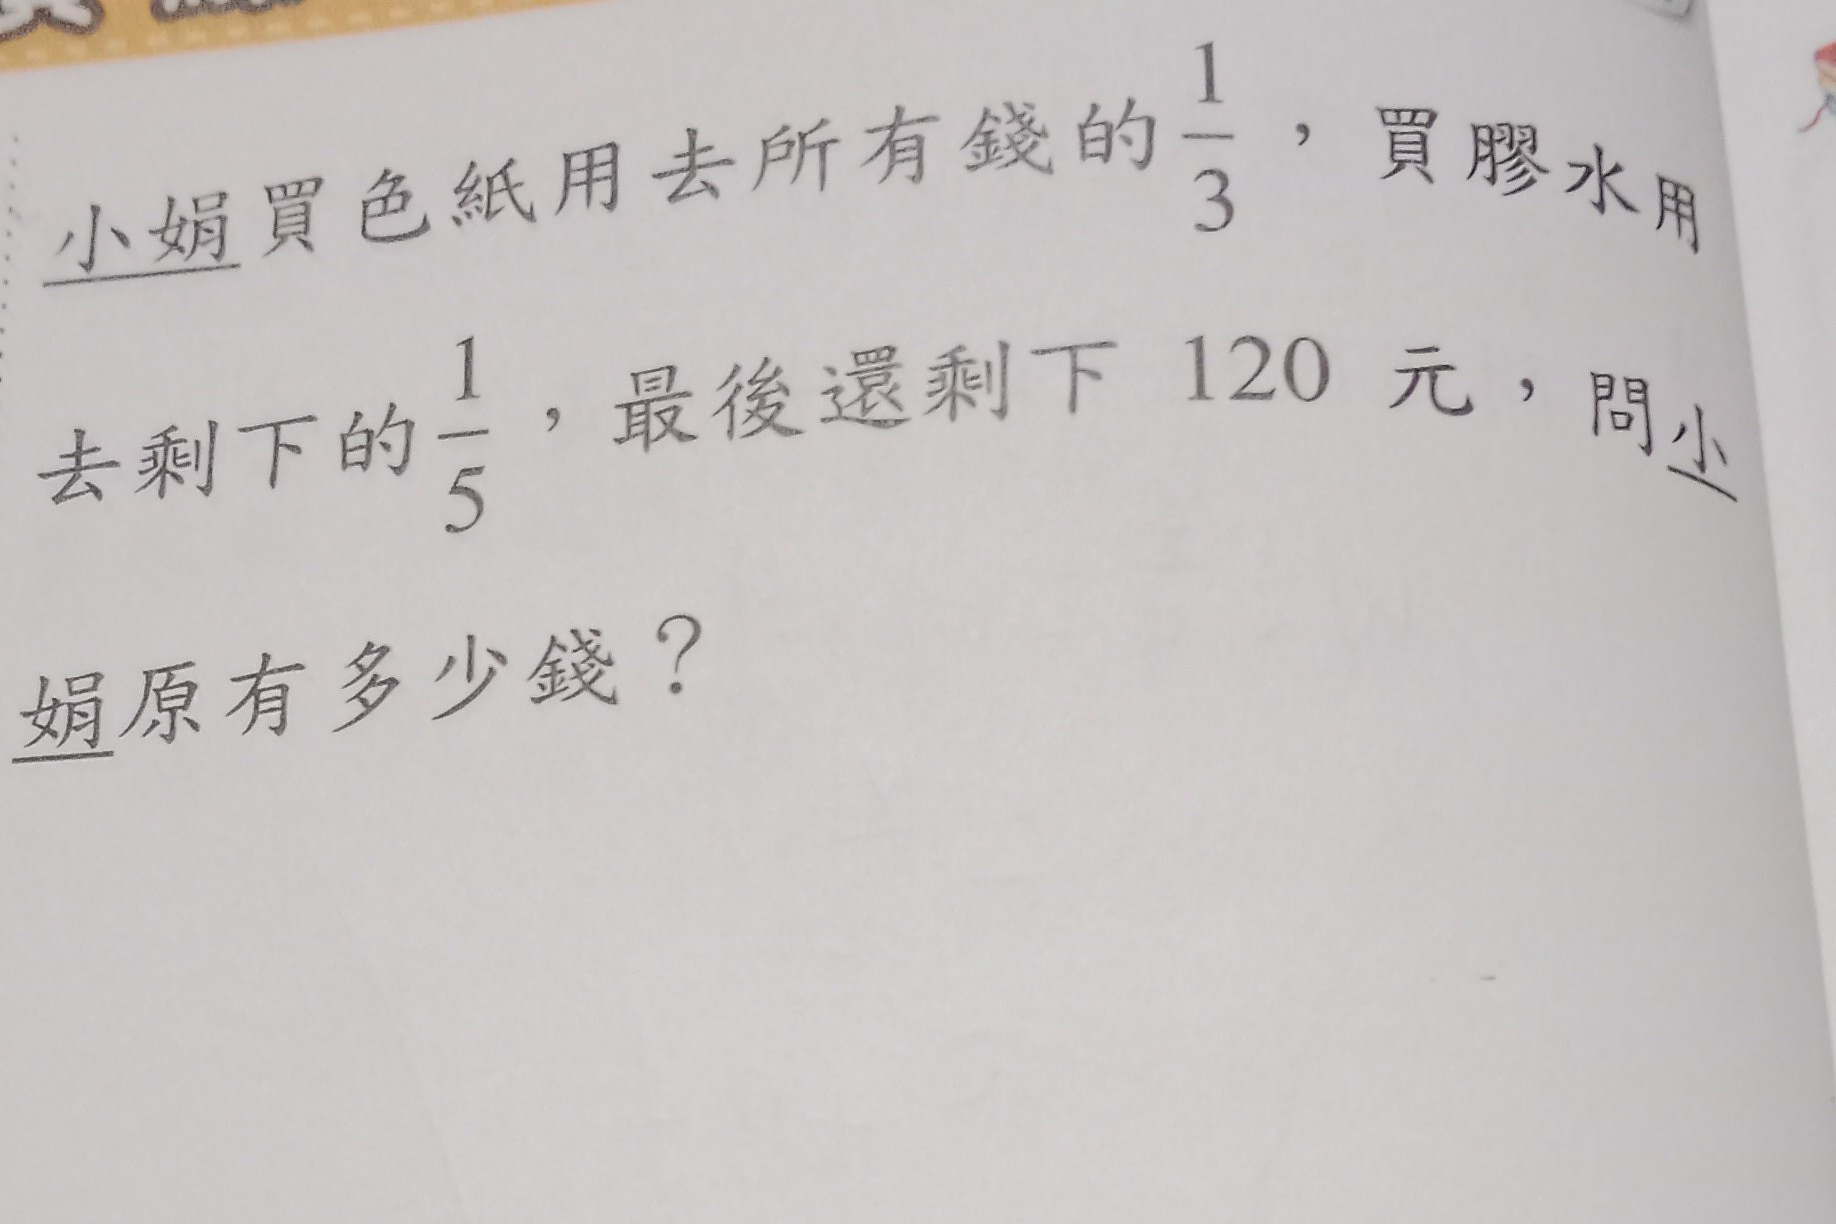 小娟買色紙用去所有錢的1/3，買膠水用
去剩下的1/5，最後還剩下 120 元，問小
娟原有多少錢？